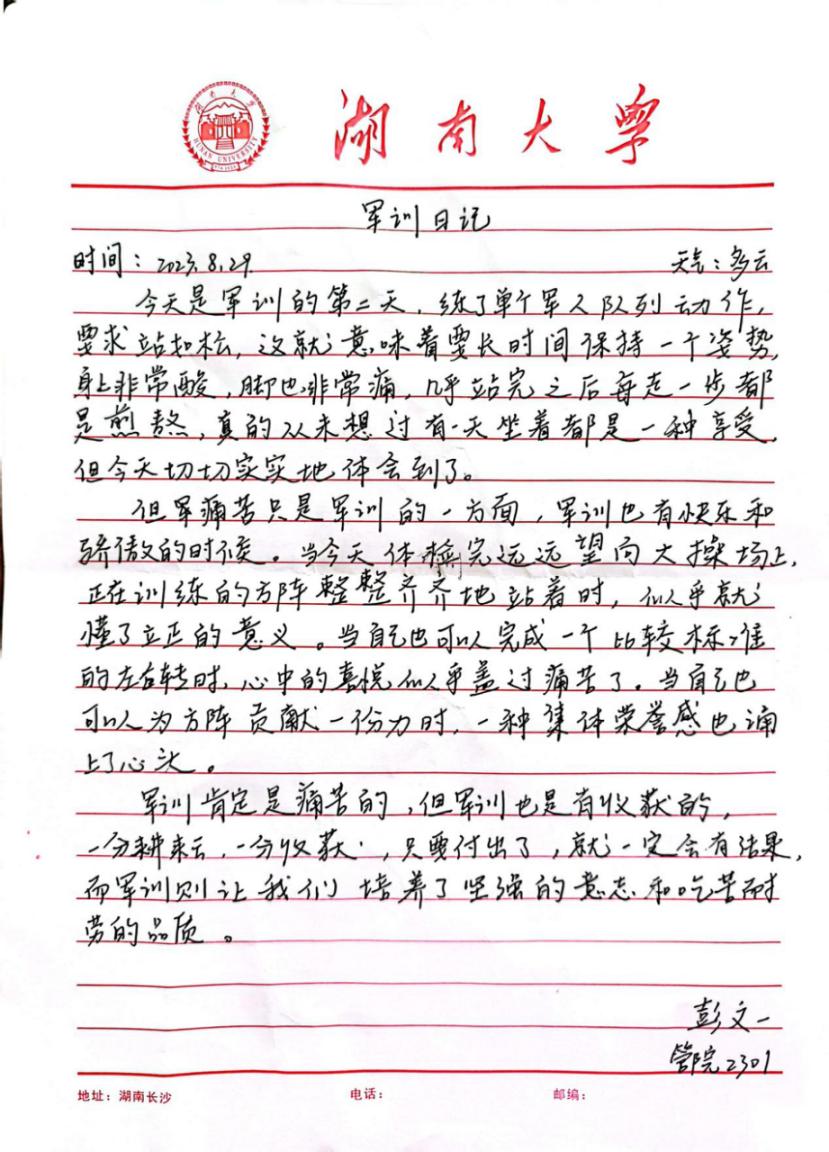 湖南大学
HUNAN UNIVERSITY
军训日记
时间：2023.8.29.
天气：多云
今天是军训的第二天，练了单个军人队列动作，
要求站如松，这就意味着要长时间保持一个姿势，
身上非常酸，脚也非常痛，几乎站完之后每走一步都
是煎熬，真的从未想过有一天坐着都是一种享受，
但今天切切实实地体会到了。
但军痛苦只是军训的一方面，军训也有快乐和
骄傲的时候。当今天休息完远远望向大操场上，
正在训练的方阵整整齐齐地站着时，似乎就
懂了立正的意义。当自己也可以完成一个比较标准
的左右转时，心中的喜悦似乎盖过痛苦了。当自己也
可以为方阵贡献一份力时，一种集体荣誉感也涌
上了心头。
军训肯定是痛苦的，但军训也是有收获的，
一分耕耘，一分收获，只要付出了，就一定会有结果，
而军训则让我们培养了坚强的意志和吃苦耐
劳的品质。
彭文一
管院2301
地址：湖南长沙
电话：
邮编：